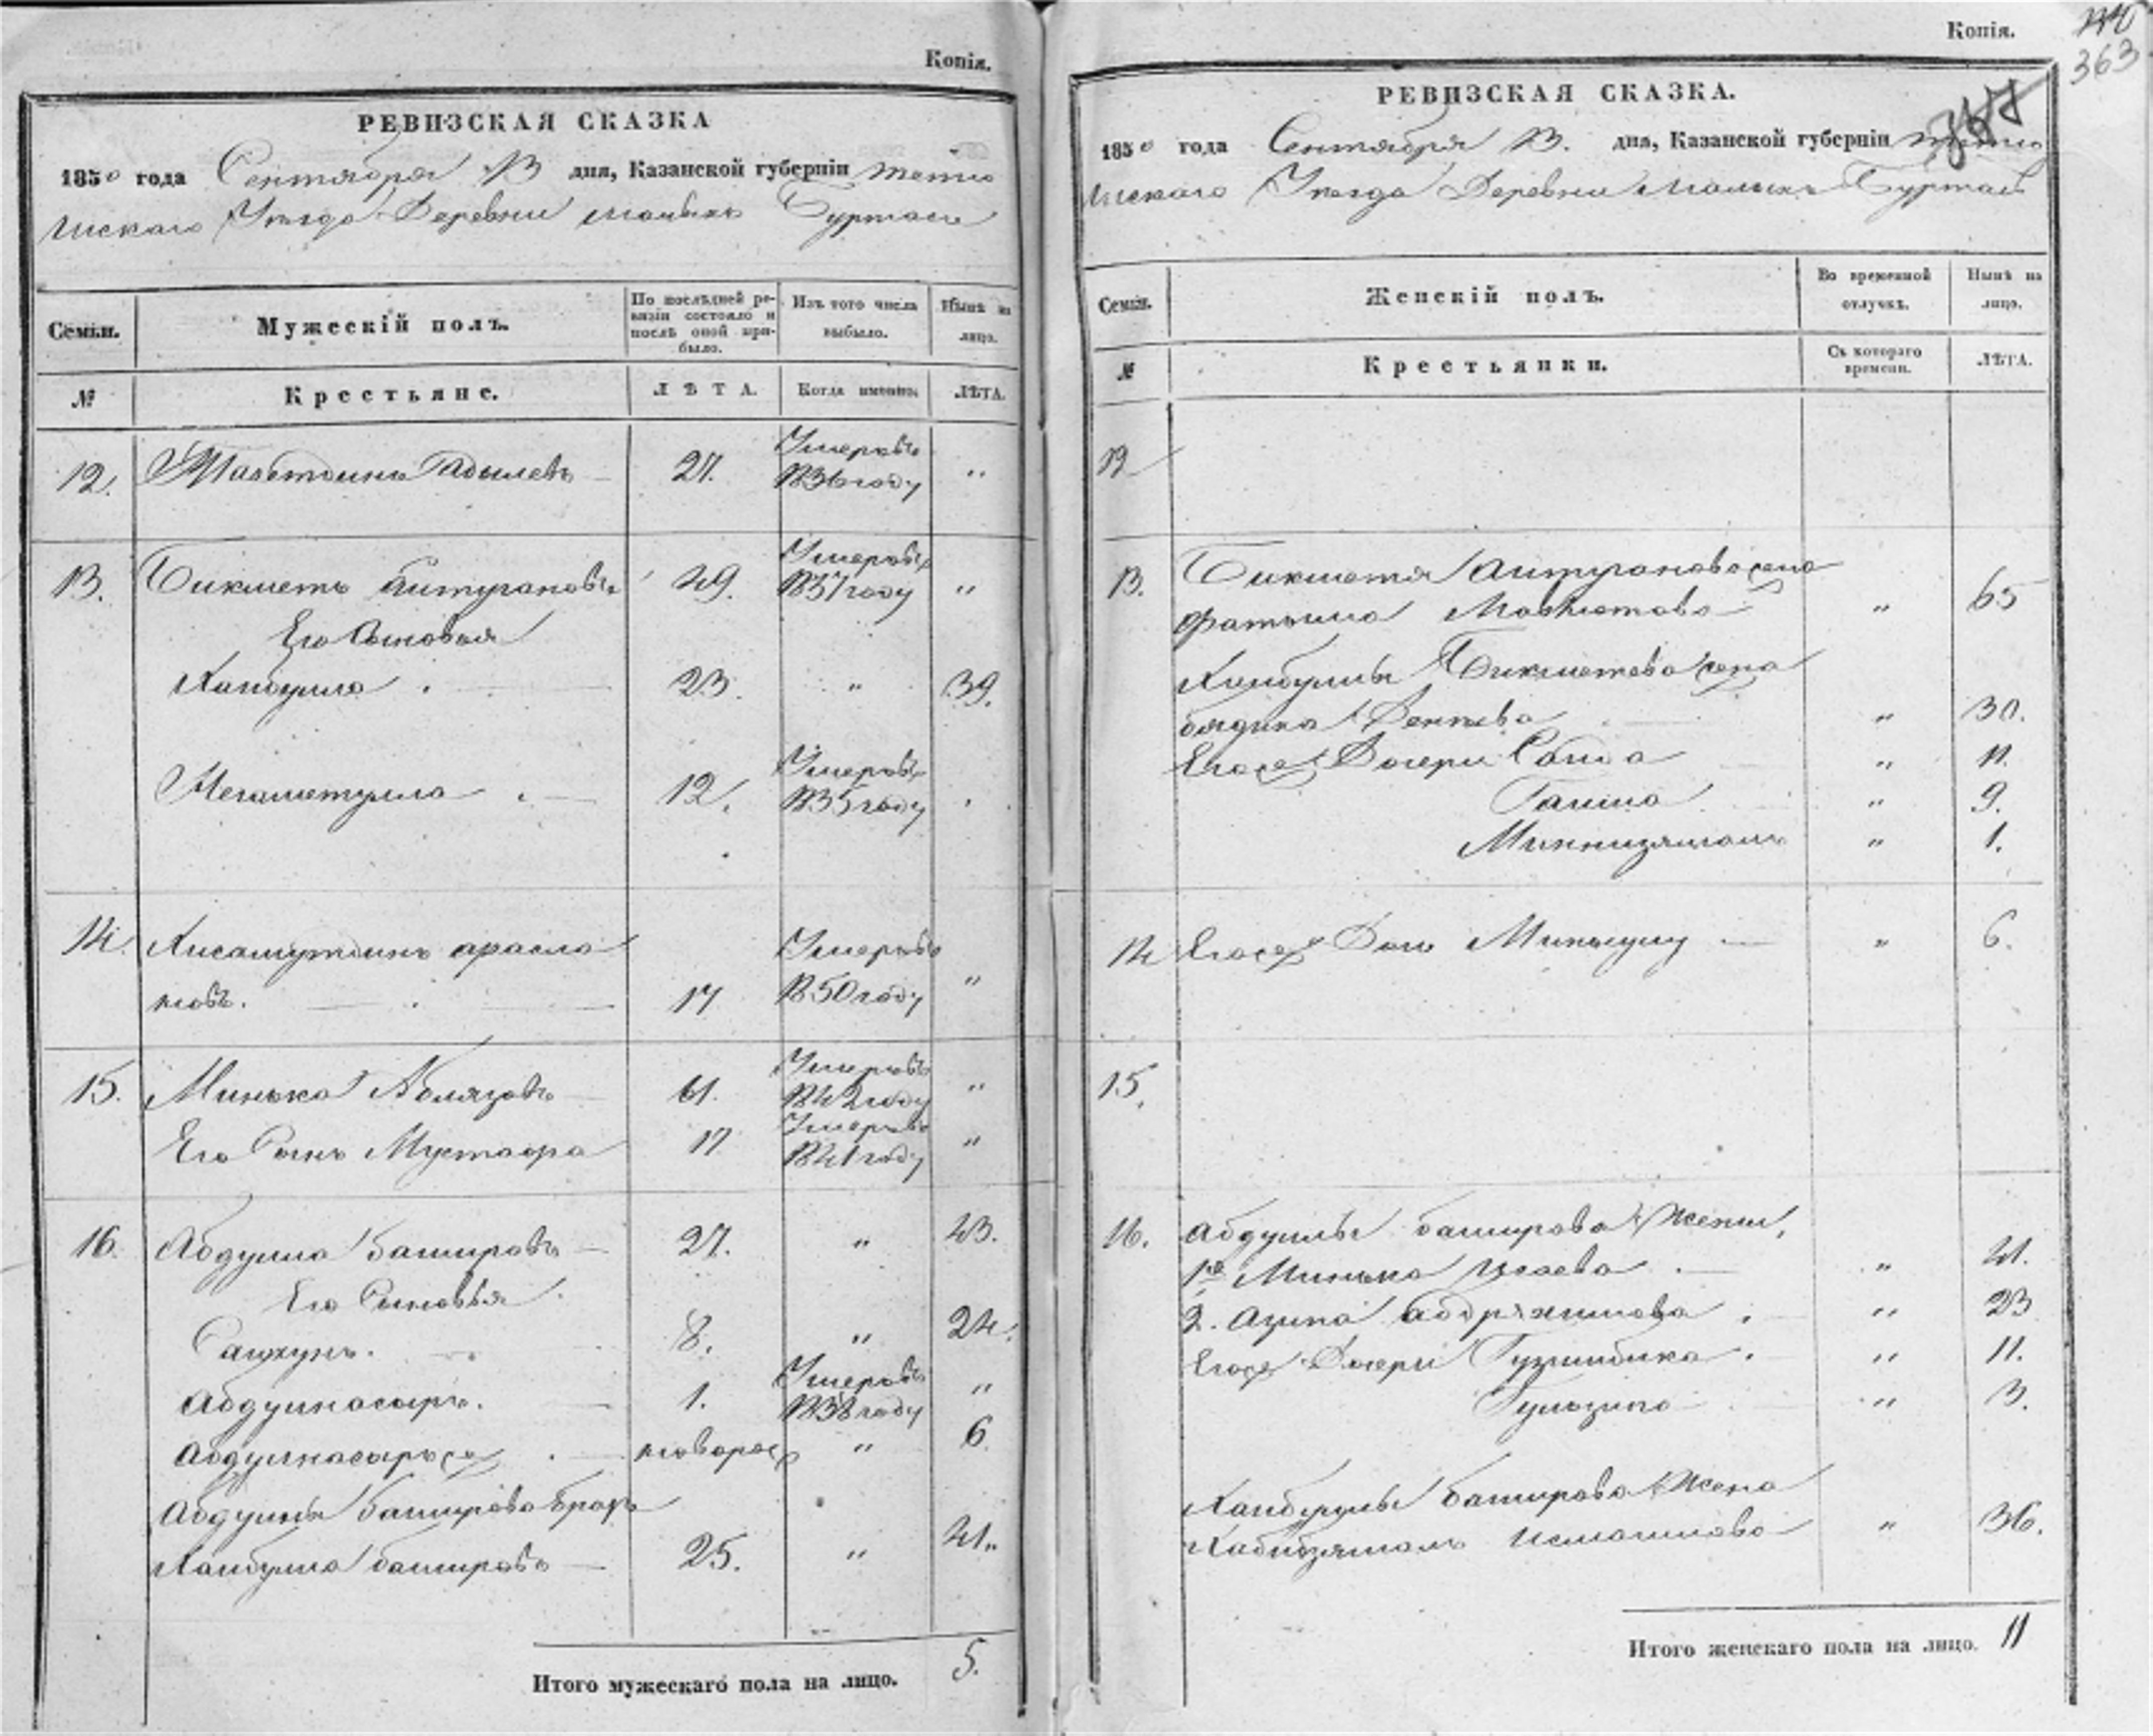 Копія.
РЕВИЗСКАЯ СКАЗКА
1850 года Сентября 13 дня, Казанской губерніи Тетю
шскаго Уезда Деревни Малыхъ Буртас
Семьи.
Мужескій полъ.
По послѣдней ре-
визіи состояло и
послѣ оной при-
было.
Изъ того числа
выбыло.
Нынѣ на
лицо.
№
Крестьяне.
ЛѢТА.
Когда именно.
ЛѢТА.
12. 27. Умеръ въ 1836 году "
13. Бикметь Аитугановъ 49. Умеръ въ 1837 году "
Его Сыновья
Хаибулла 23. " 39.
12. Умеръ въ 1835 году
14. Хисамутдинъ арасла
новъ. 17 Умеръ въ 1850 году "
15. Минька Аблязовъ 61. Умеръ въ 1842 году "
Его Сынъ Мустафа 17 Умеръ въ 1841 году "
16. Абдулла Башировъ 27. " 43.
Его Сыновья
8. " 24.
Абдулнасыръ. 1. Умеръ въ 1838 году "
Абдулнасыръ же новорож " 6
Абдуллы Баширова братъ
Хаибулла башировъ 25. " 41.
Итого мужескаго пола на лицо. 5.
Копія.
363
РЕВИЗСКАЯ СКАЗКА.
1850 года Сентября 13. дня, Казанской губерніи Тетю
шскаго Уезда Деревни Малыхъ Буртас
Семьи.
Женскій полъ.
Во временной
отлучкѣ.
Нынѣ на
лицо.
№
Крестьянки.
Съ котораго
времени.
ЛѢТА.
12
13. Бикметя Аитуганова жена
Фатьима " 65
Хаибуллы Бикметева жена
" 30.
Егоже Дочери " 11.
Галима " 9.
" 1.
14 Егоже Дочь " 6.
15.
16. Абдуллы баширова Жены,
1я Минька " 41.
2. Азипа абдряхимова " 23
Егоже Дочери " 11.
" 3.
Хаибуллы баширова Жена
Хабибзямалъ Исмаилова " 36.
Итого женскаго пола на лицо. 11